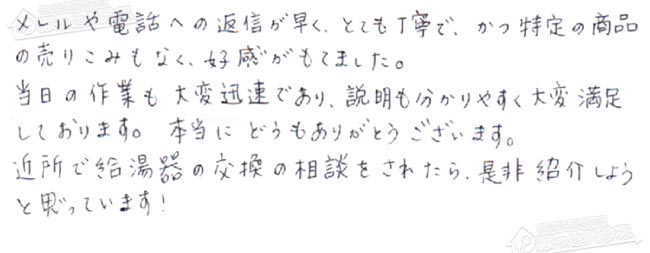 メールや電話への返信が早く、とても丁寧で、かつ特定の商品
の売りこみもなく、好感がもてました。
当日の作業も大変迅速であり、説明も分かりやすく大変満足
しております。本当にどうもありがとうございます。
近所で給湯器の交換の相談をされたら、是非紹介しよう
と思っています!